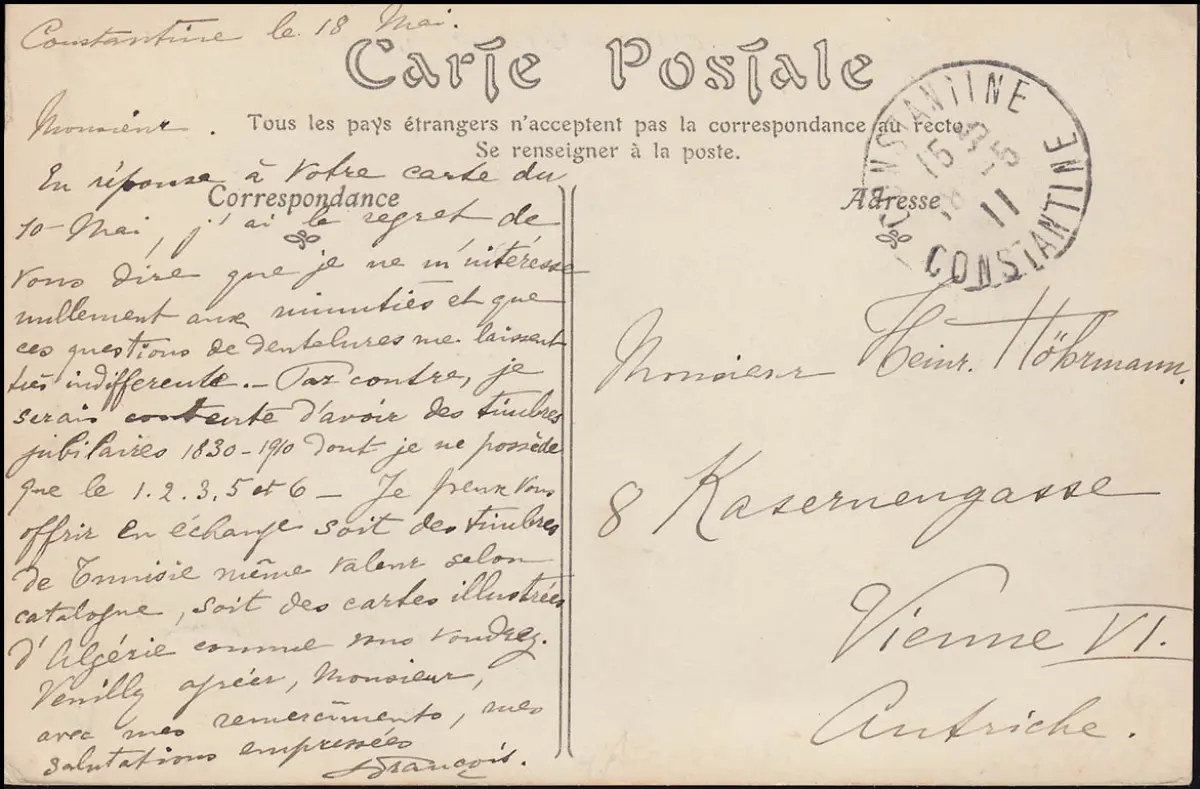 Constantine le 18 Mai.
Carte Postale
Tous les pays étrangers n'acceptent pas la correspondance au recto.
Se renseigner à la poste.
Correspondance
Adresse
CONSTANTINE
15
18-5
11
CONSTANTINE
Monsieur.
En réponse à votre carte du
10-Mai, j'ai le regret de
vous dire que je ne m'intéresse
nullement aux minuties et que
ces questions de dentelures me laissent
très indifférente. - Par contre, je
serais contente d'avoir des timbres
jubilaires 1830-1910 dont je ne possède
que le 1.2.3,5 et 6 - Je peux vous
offrir en échange soit des timbres
de Tunisie même valeur selon
catalogue, soit des cartes illustrées
d'Algérie comme vous voudrez.
Veuillez agréer, Monsieur,
avec mes remercîments, mes
salutations empressées
François.
Monsieur Heinr. Höhrmann.
8 Kasernengasse
Vienne VI.
Autriche.